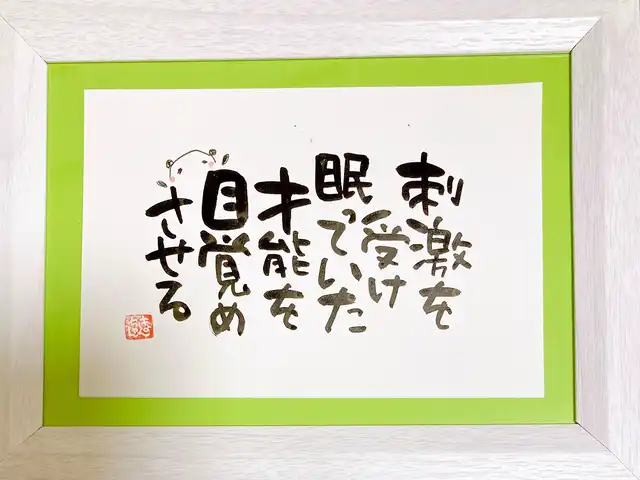 刺激を
受け
眠っていた
才能を
目覚め
させる